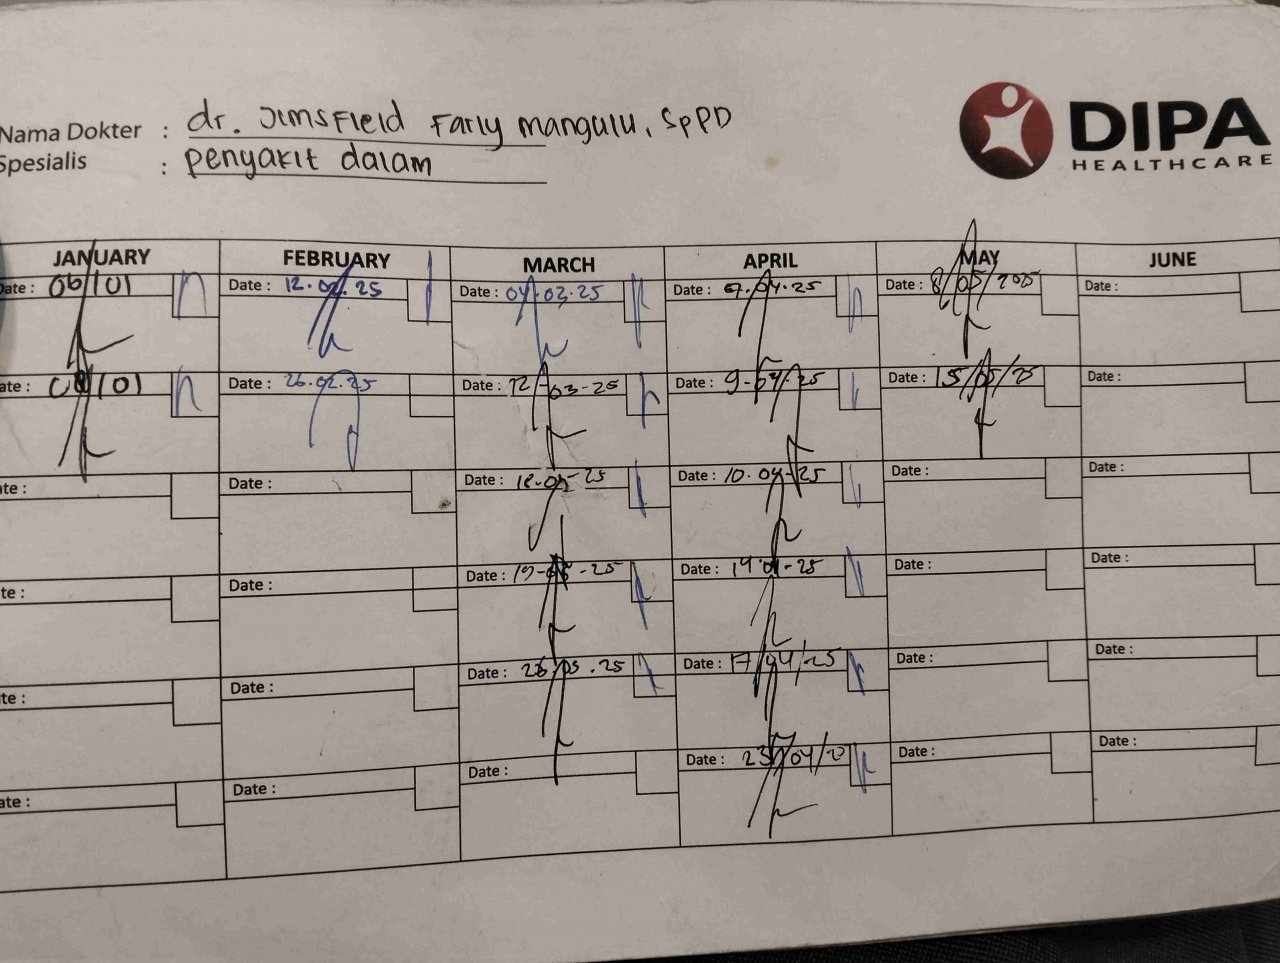 Nama Dokter : dr. Jimsfield Farly Mangulu, SpPD
Spesialis : Penyakit dalam
DIPA
HEALTHCARE
JANUARY FEBRUARY MARCH APRIL MAY JUNE
Date : 06/01 Date : 12.02.25 Date : 04.03.25 Date : 07.04.25 Date : 8/05/2025 Date :
Date : 08/01 Date : 26.02.25 Date : 12-03-25 Date : 9-04-25 Date : 15/05/25 Date :
Date : Date : Date : 18-03-25 Date : 10.04-25 Date : Date :
Date : Date : Date : 19-03-25 Date : 14-04-25 Date : Date :
Date : Date : Date : 26.03.25 Date : 17/04/25 Date : Date :
Date : Date : Date : Date : 23/04/2 Date : Date :